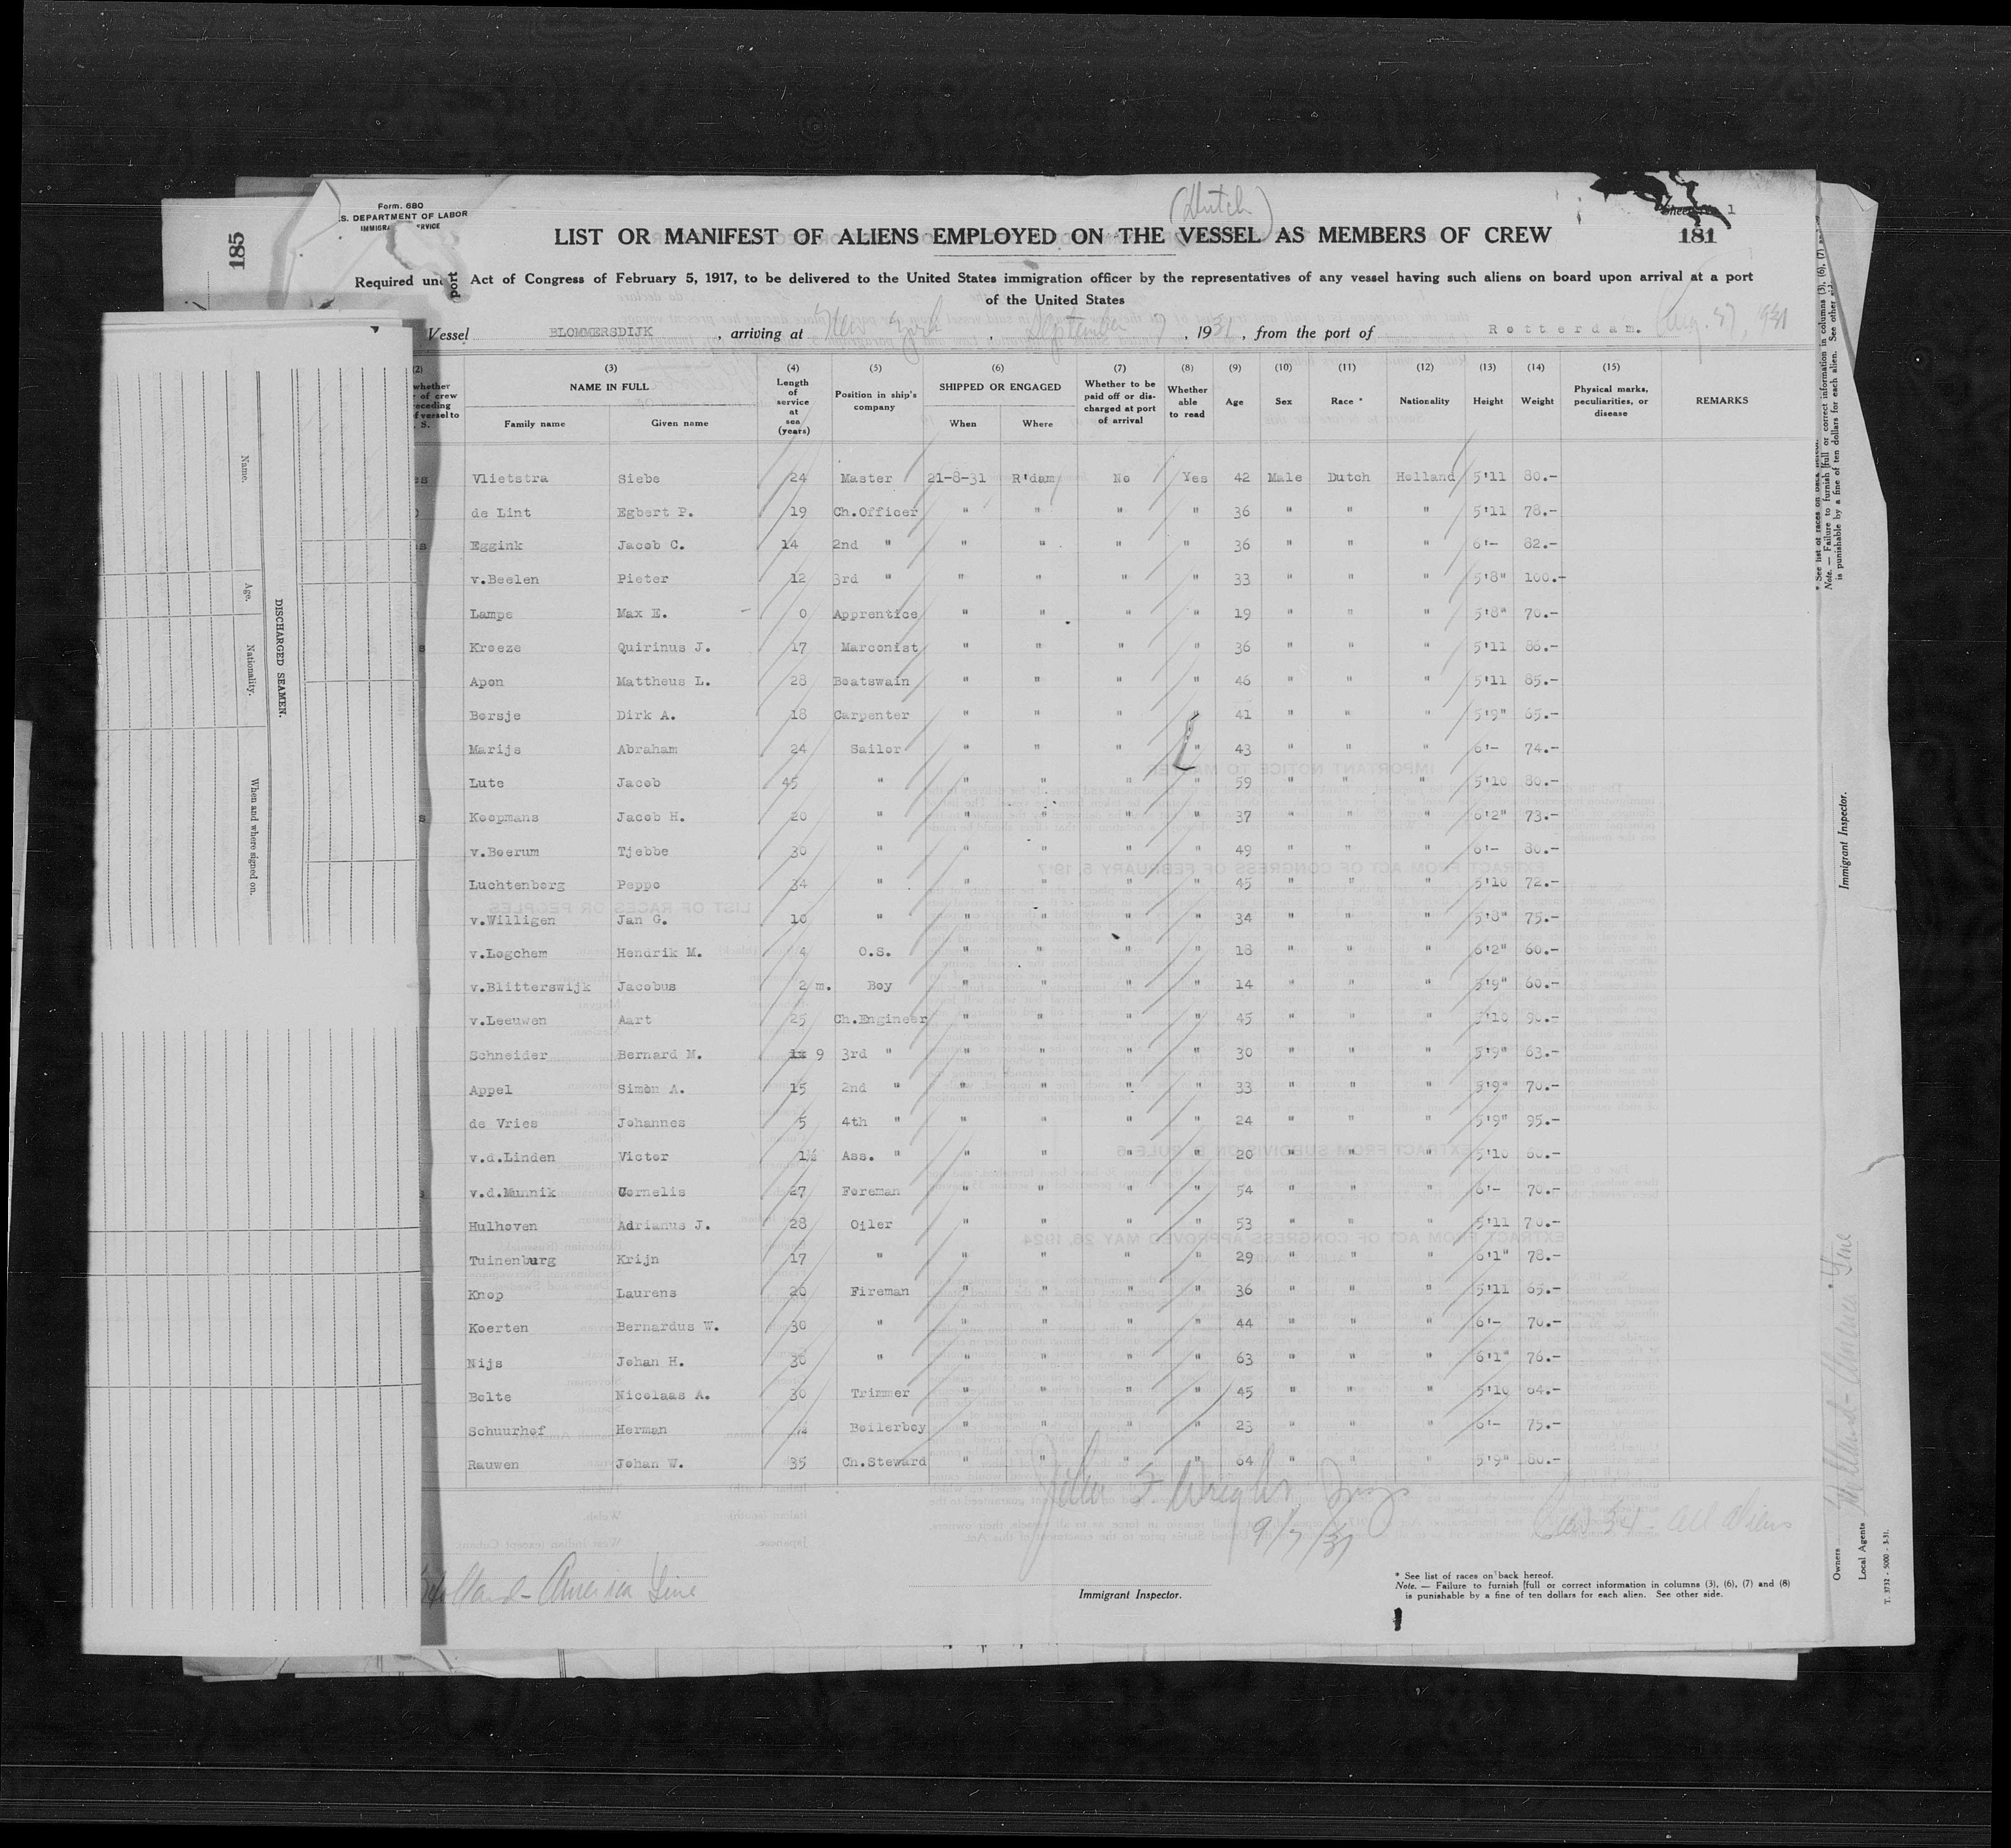 (Dutch)
Form. 680
.S. DEPARTMENT OF LABOR
185
181
1
LIST OR MANIFEST OF ALIENS EMPLOYED ON THE VESSEL AS MEMBERS OF CREW
Required und Act of Congress of February 5, 1917, to be delivered to the United States immigration officer by the representatives of any vessel having such aliens on board upon arrival at a port
of the United States
port
Vessel BLOMMERSDIJK , arriving at New York , September 7 , 1931 , from the port of Rotterdam. Aug. 27, 1931
(2) (3) (4) (5) (6) (7) (8) (9) (10) (11) (12) (13) (14) (15)
NAME IN FULL Length of service at sea (years) Position in ship's company SHIPPED OR ENGAGED Whether to be paid off or discharged at port of arrival Whether able to read Age Sex Race * Nationality Height Weight Physical marks, peculiarities, or disease REMARKS
Family name Given name When Where
Vlietstra Siebe 24 Master 21-8-31 R'dam No Yes 42 Male Dutch Holland 5'11 80.-
de Lint Egbert P. 19 Ch.Officer " " " " 36 " " " 5'11 78.-
Eggink Jacob C. 14 2nd " " " " " 36 " " " 6'- 82.-
v.Beelen Pieter 12 3rd " " " " " 33 " " " 5'8" 100.-
Lamps Max E. - 0 Apprentice " " " " 19 " " " 5'8" 70.-
Kroeze Quirinus J. 17 Marconist " " " " 36 " " " 5'11 86.-
Apon Mattheus L. 28 Boatswain " " " " 46 " " " 5'11 85.-
Borsje Dirk A. 18 Carpenter " " " " 41 " " " 5'9" 65.-
Marijs Abraham 24 Sailor " " " " 43 " " " 6'- 74.-
Lute Jacob 45 " " " " " 59 " " " 5'10 80.-
Koopmans Jacob H. 20 " " " " " 37 " " " 6'2" 73.-
v.Boerum Tjebbe 30 " " " " " 49 " " " 6'- 80.-
Luchtenborg Peppo 34 " " " " " 45 " " " 5'10 72.-
v.Willigen Jan G. 10 " " " " " 34 " " " 5'8" 75.-
v.Logchem Hendrik M. 4 O.S. " " " " 18 " " " 6'2" 60.-
v.Blitterswijk Jacobus 2 m. Boy " " " " 14 " " " 5'9" 60.-
v.Leeuwen Aart 25 Ch.Engineer " " " " 45 " " " 5'10 90.-
Schneider Bernard M. 9 3rd " " " " " 30 " " " 5'9" 63.-
Appel Simon A. 15 2nd " " " " " 33 " " " 5'9" 70.-
de Vries Johannes 5 4th " " " " " 24 " " " 5'9" 95.-
v.d.Linden Victor 1½ Ass. " " " " " 20 " " " 5'10 60.-
v.d.Munnik Cornelis 27 Foreman " " " " 54 " " " 6'- 70.-
Hulhoven Adrianus J. 28 Oiler " " " " 53 " " " 5'11 70.-
Tuinenburg Krijn 17 " " " " " 29 " " " 6'1" 78.-
Knop Laurens 20 Fireman " " " " 36 " " " 5'11 65.-
Koerten Bernardus W. 30 " " " " " 44 " " " 6'- 70.-
Nijs Johan H. 30 " " " " " 63 " " " 6'1" 76.-
Bolte Nicolaas A. 30 Trimmer " " " " 45 " " " 5'10 64.-
Schuurhof Herman Boilerboy " " " " 23 " " " 6'- 75.-
Rauwen Johan W. 35 Ch.Steward " " " " 64 " " " 5'9" 80.-
John F. Wright, Insp
9/7/31
all aliens
Holland-America Line
Immigrant Inspector.
* See list of races on back hereof.
Note. — Failure to furnish full or correct information in columns (3), (6), (7) and (8)
is punishable by a fine of ten dollars for each alien. See other side.
DISCHARGED SEAMEN.
Name.
Age.
Nationality.
When and where signed on.
* See list of races on back hereof.
Note. — Failure to furnish full or correct information in columns (3), (6), (7) and
is punishable by a fine of ten dollars for each alien. See other
Immigrant Inspector.
Owners Holland-America Line
Local Agents
T. 3732 - 5000 - 3-31.